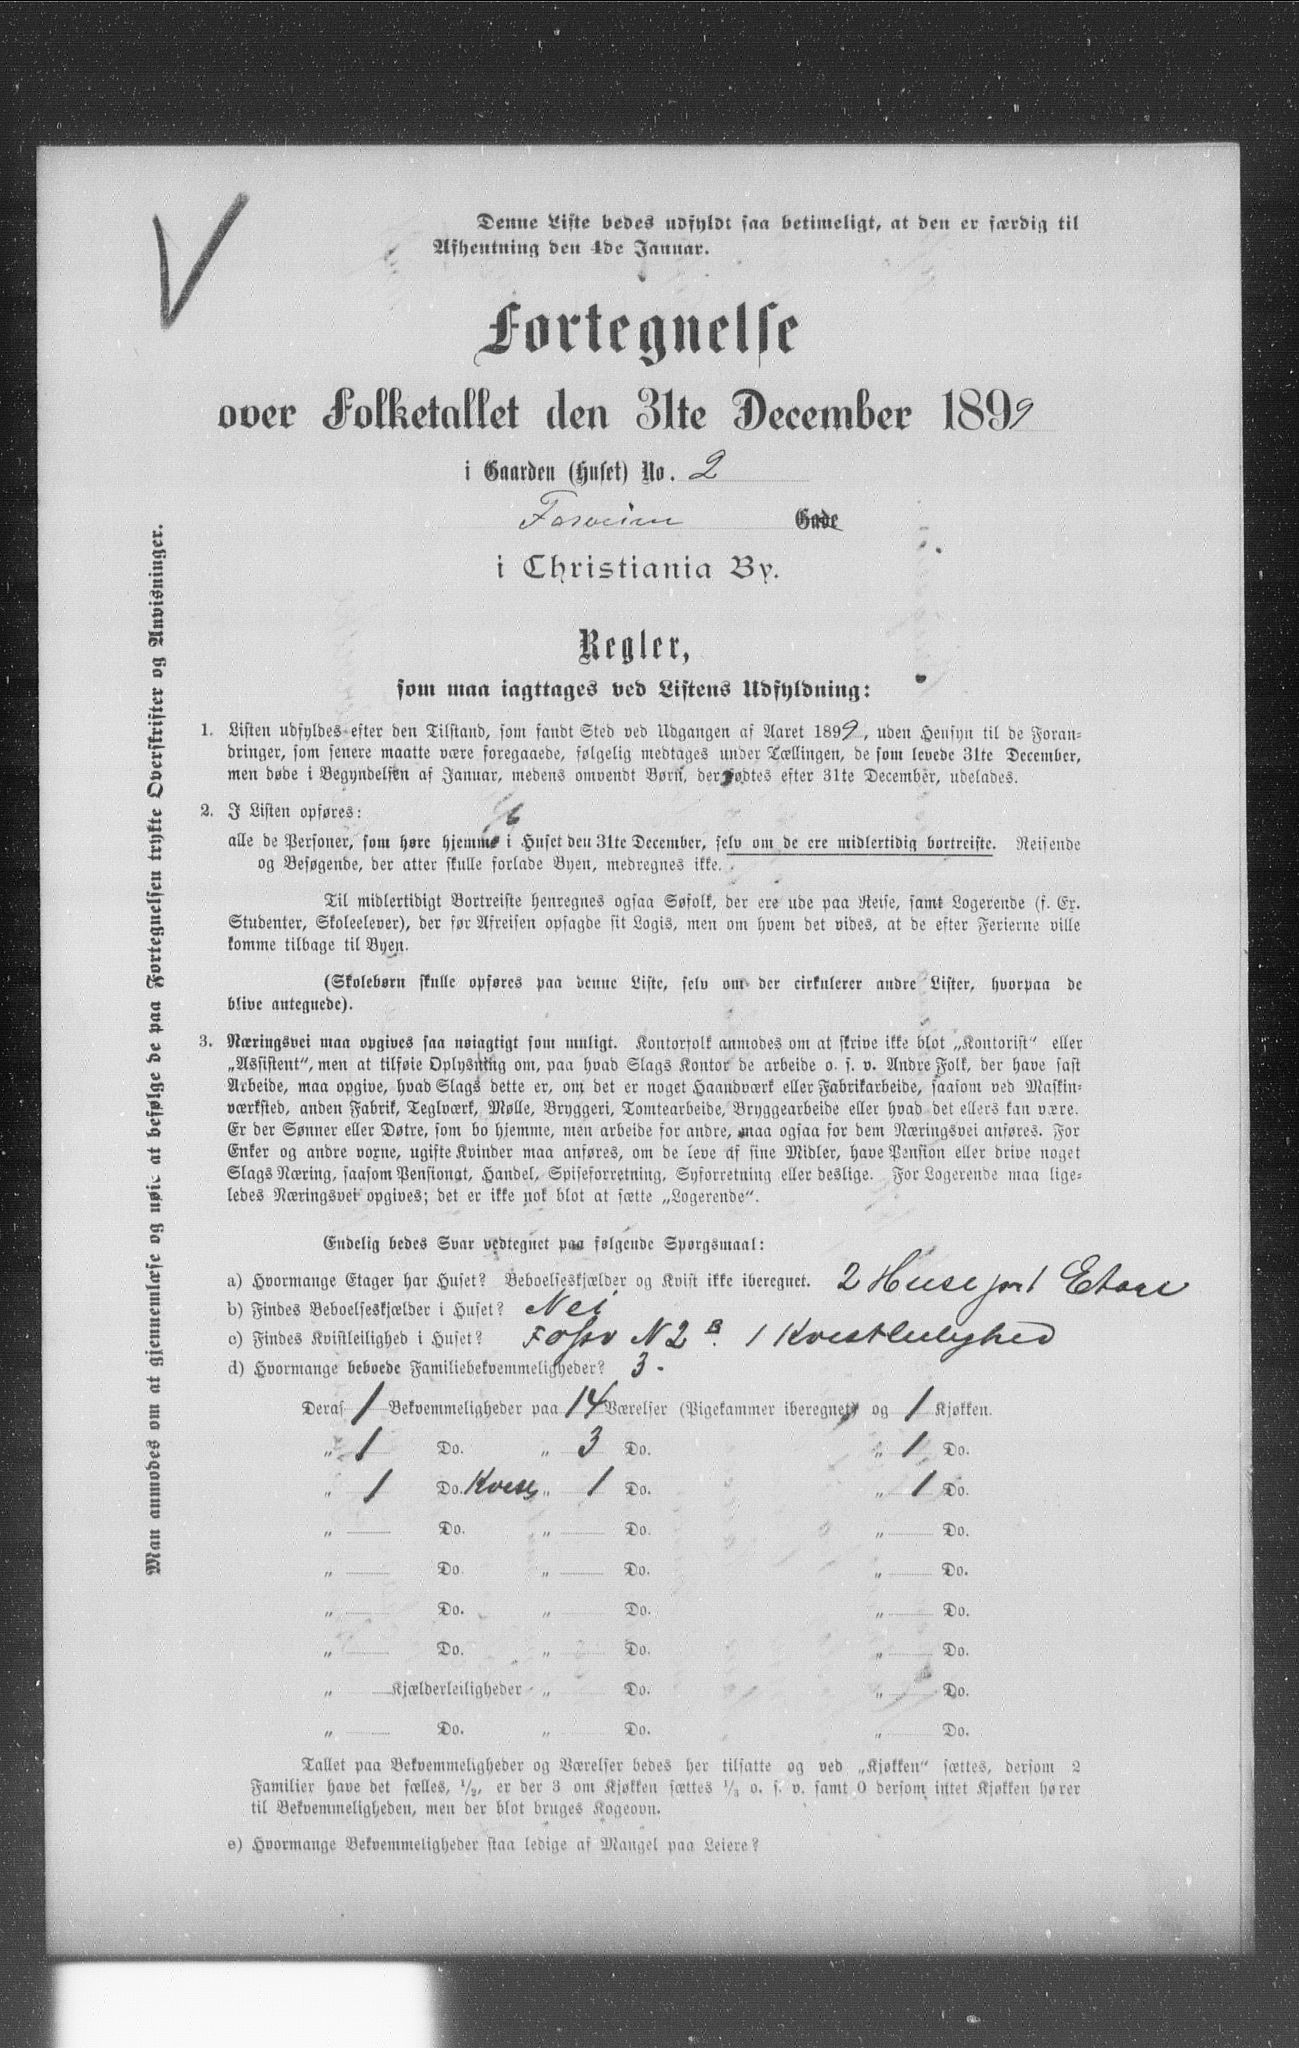 Denne Liste bedes udfyldt saa betimeligt, at den er færdig til
Afhentning den 4de Januar.
Fortegnelse
over Folketallet den 31te December 1899
i Gaarden (Huset) No. 2
Gade
i Christiania By.
Regler,
som maa iagttages ved Listens Udfyldning:
1. Listen udfyldes efter den Tilstand, som fandt Sted ved Udgangen af Aaret 1899, uden Hensyn til de Foran-
dringer, som senere maatte være foregaaede, følgelig medtages under Tællingen, de som levede 31te December,
men døde i Begyndelsen af Januar, medens omvendt Børn, der fødtes efter 31te December, udelades.
2. I Listen opføres:
alle de Personer, som høre hjemme i Huset den 31te December, selv om de ere midlertidig bortreiste. Reisende
og Besøgende, der atter skulle forlade Byen, medregnes ikke.
Til midlertidigt Bortreiste henregnes ogsaa Søfolk, der ere ude paa Reise, samt Logerende (f. Ex.
Studenter, Skoleelever), der før Afreisen opsagde sit Logis, men om hvem det vides, at de efter Ferierne ville
komme tilbage til Byen.
(Skolebørn skulle opføres paa denne Liste, selv om der cirkulerer andre Lister, hvorpaa de
blive antegnede).
3. Næringsvei maa opgives saa nøiagtigt som muligt. Kontorfolk anmodes om at skrive ikke blot „Kontorist“ eller
„Assistent“, men at tilføie Oplysning om, paa hvad Slags Kontor de arbeide o. s. v. Andre Folk, der have fast
Arbeide, maa opgive, hvad Slags dette er, om det er noget Haandværk eller Fabrikarbeide, saasom ved Maskin-
værksted, anden Fabrik, Teglværk, Mølle, Bryggeri, Tomtearbeide, Bryggearbeide eller hvad det ellers kan være.
Er der Sønner eller Døtre, som bo hjemme, men arbeide for andre, maa ogsaa for dem Næringsvei anføres. For
Enker og andre voxne, ugifte Kvinder maa anføres, om de leve af sine Midler, have Pension eller drive noget
Slags Næring, saasom Pensionat, Handel, Spiseforretning, Syforretning eller deslige. For Logerende maa lige-
ledes Næringsvei opgives; det er ikke nok blot at sætte „Logerende“.
Endelig bedes Svar vedtegnet paa følgende Spørgsmaal:
a) Hvormange Etager har Huset? Beboelseskjælder og Kvist ikke iberegnet. 2 Huse 1 Etage
b) Findes Beboelseskjælder i Huset? Nei
c) Findes Kvistleilighed i Huset? Fossv N 2 B. 1 Kvistleilighed
d) Hvormange beboede Familiebekvemmeligheder? 3.
Deraf 1 Bekvemmeligheder paa 14 Værelser (Pigekammer iberegnet) og 1 Kjøkken.
„ 1 Do. „ 3 Do. „ 1 Do.
„ 1 Do. Kvist „ 1 Do. „ 1 Do.
„ Do. „ Do. „ Do.
„ Do. „ Do. „ Do.
„ Do. „ Do. „ Do.
„ Do. „ Do. „ Do.
„ Kjælderleiligheder „ Do. „ Do.
„ Do. „ Do. „ Do.
Tallet paa Bekvemmeligheder og Værelser bedes her tilsatte og ved „Kjøkken“ sættes, dersom 2
Familier have det fælles, 1/2, er der 3 om Kjøkken sættes 1/3 o. s. v. samt 0 dersom intet Kjøkken hører
til Bekvemmeligheden, men der blot bruges Kogeovn.
e) Hvormange Bekvemmeligheder staa ledige af Mangel paa Leiere?
Man anmodes om at gjennemlæse og nøie at befølge de paa Fortegnelsen trykte Overskrifter og Anvisninger.